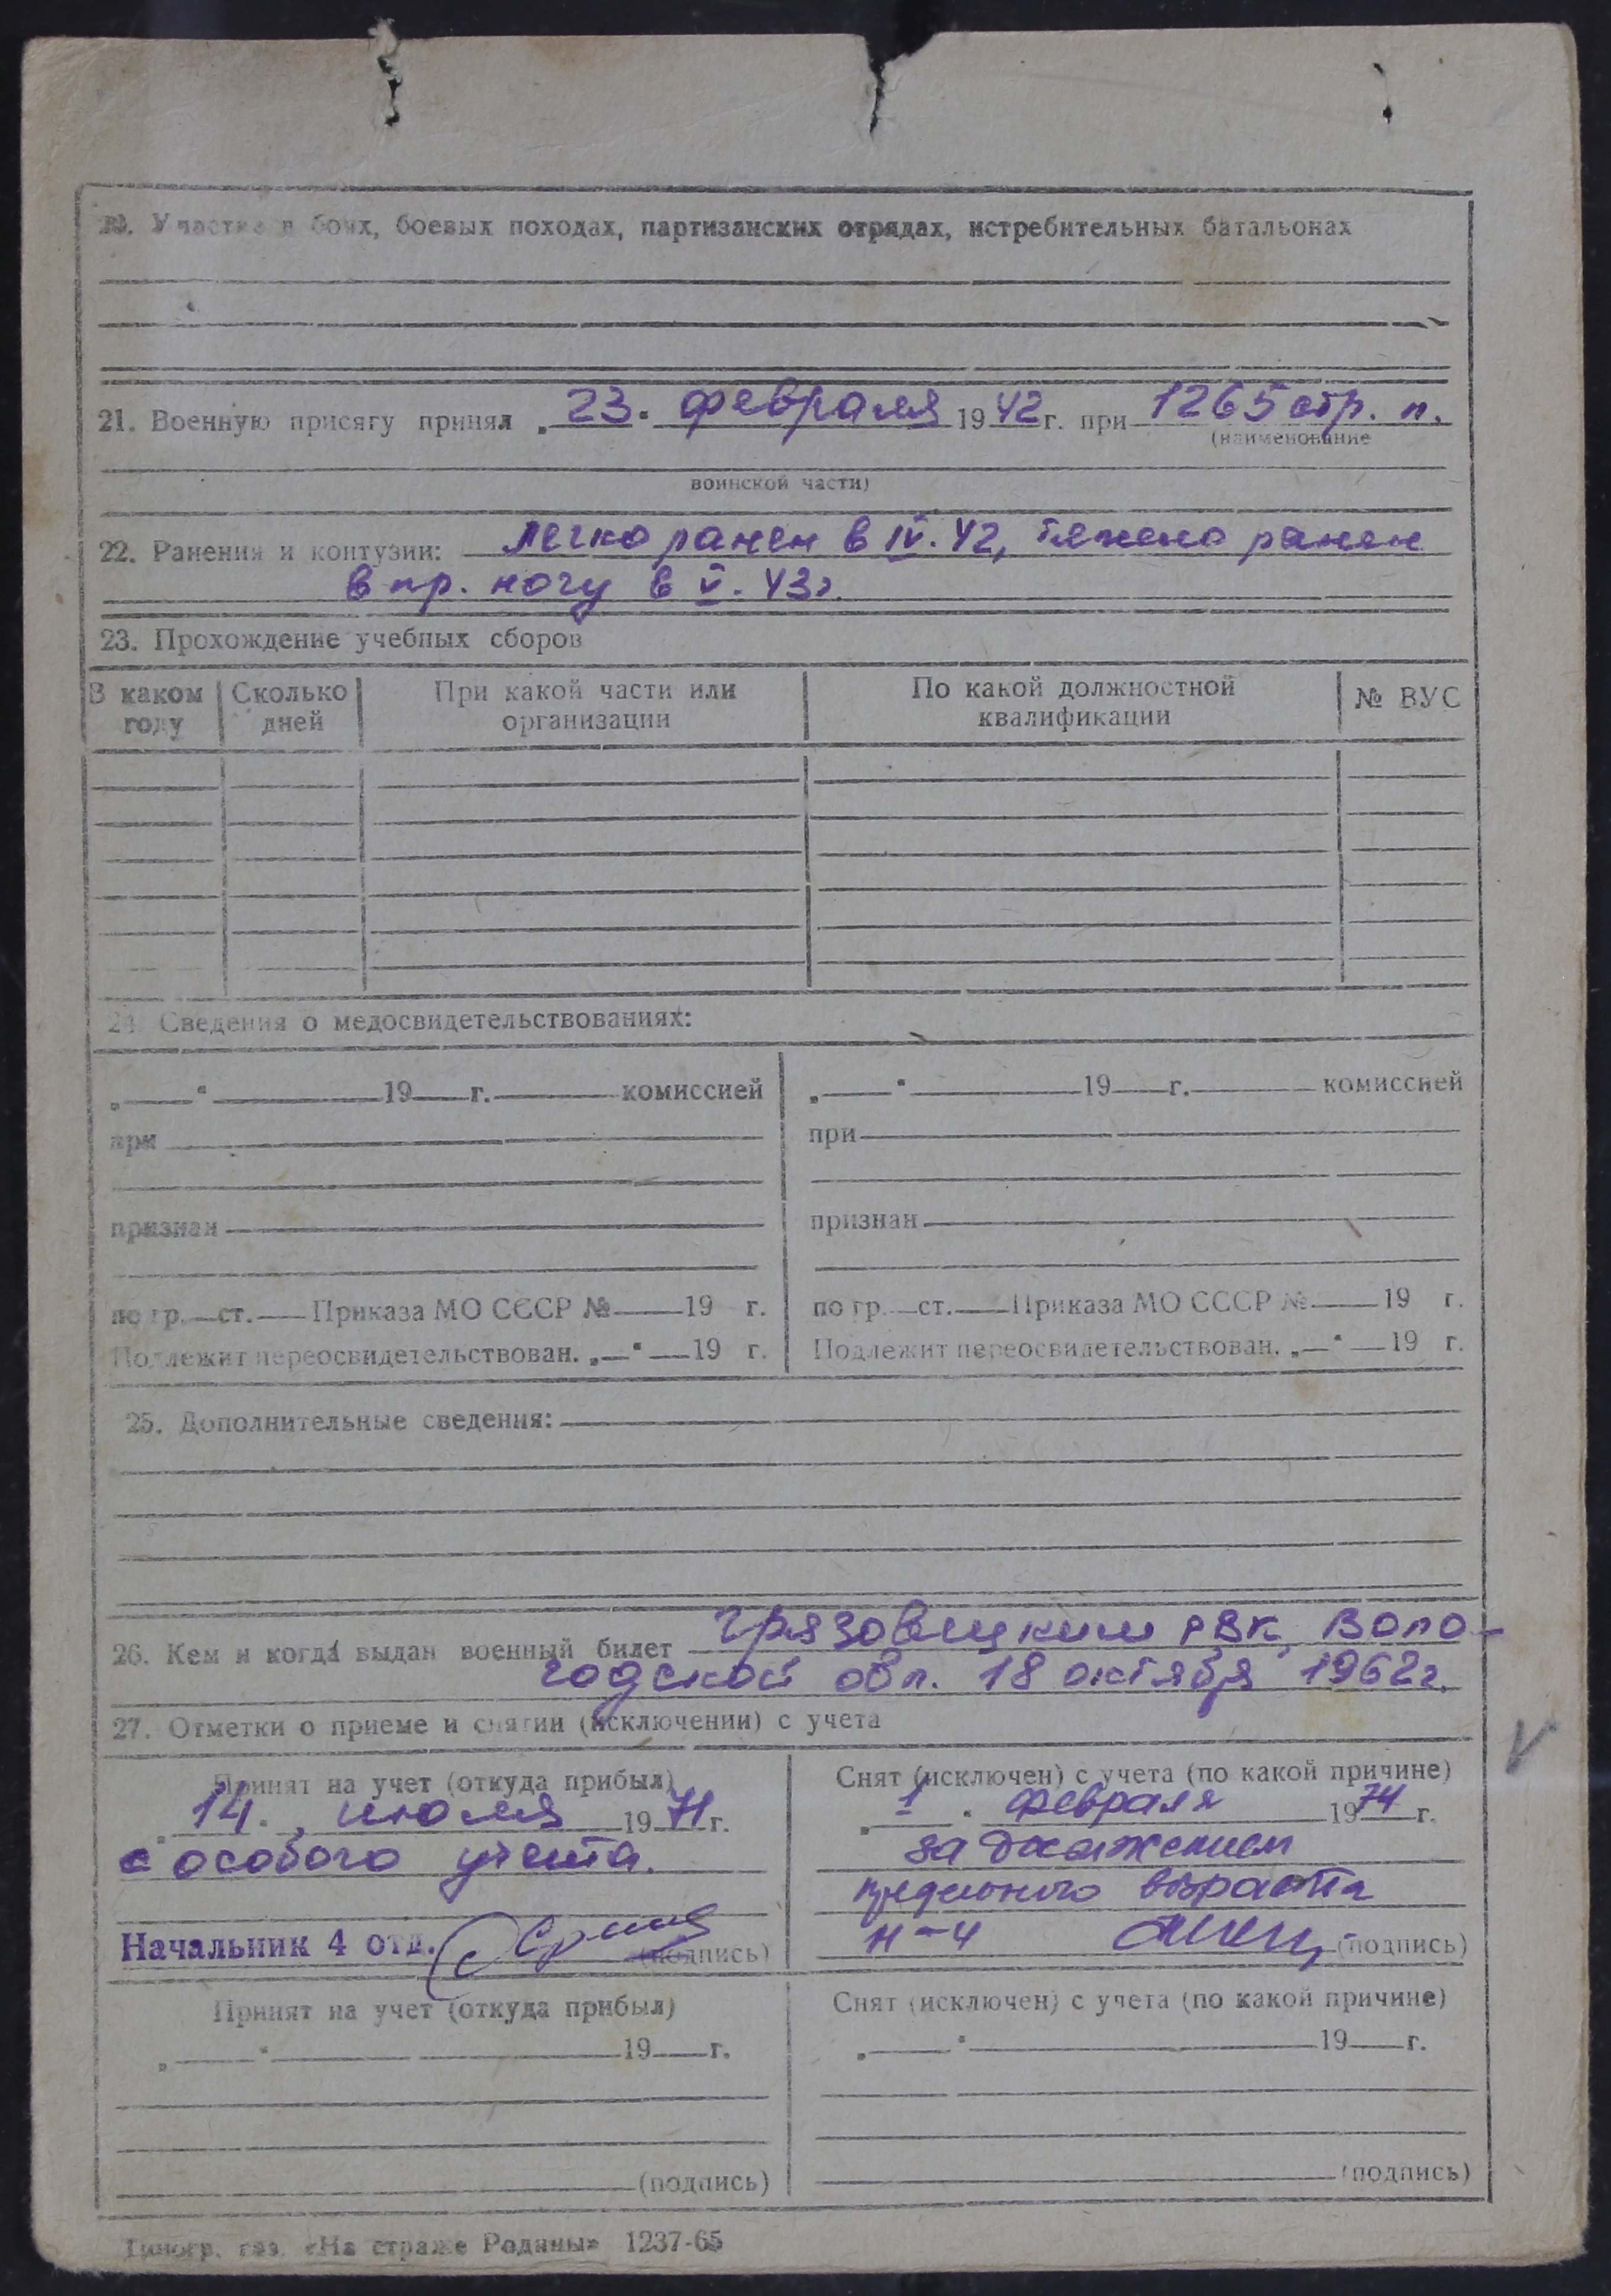 20. Участие в боях, боевых походах, партизанских отрядах, истребительных батальонах
21. Военную присягу принял „ 23 " февраля 1942 г. при 1265 стр. п.
(наименование
воинской части)
22. Ранения и контузии: легко ранен в IV. 42, тяжело ранен
в пр. ногу в V. 43г.
23. Прохождение учебных сборов
В каком году Сколько дней При какой части или организации По какой должностной квалификации № ВУС
24. Сведения о медосвидетельствованиях:
„ " 19 г. комиссией „ " 19 г. комиссией
при при
признан признан
по гр. ст. Приказа МО СССР № 19 г. по гр. ст. Приказа МО СССР № 19 г.
Подлежит переосвидетельствован. „ " 19 г. Подлежит переосвидетельствован. „ " 19 г.
25. Дополнительные сведения:
26. Кем и когда выдан военный билет Грязовецким РВК, Воло-
годской обл. 18 октября 1962г.
27. Отметки о приеме и снятии (исключении) с учета
Принят на учет (откуда прибыл) Снят (исключен) с учета (по какой причине)
„ 14 " июля 1971 г. „ 1 " февраля 1974 г.
с особого учета. за достижением
предельного возраста
Начальник 4 отд. (подпись) Н-4 (подпись)
Принят на учет (откуда прибыл) Снят (исключен) с учета (по какой причине)
„ " 19 г. „ " 19 г.
(подпись) (подпись)
Типогр. газ. «На страже Родины» 1237-65